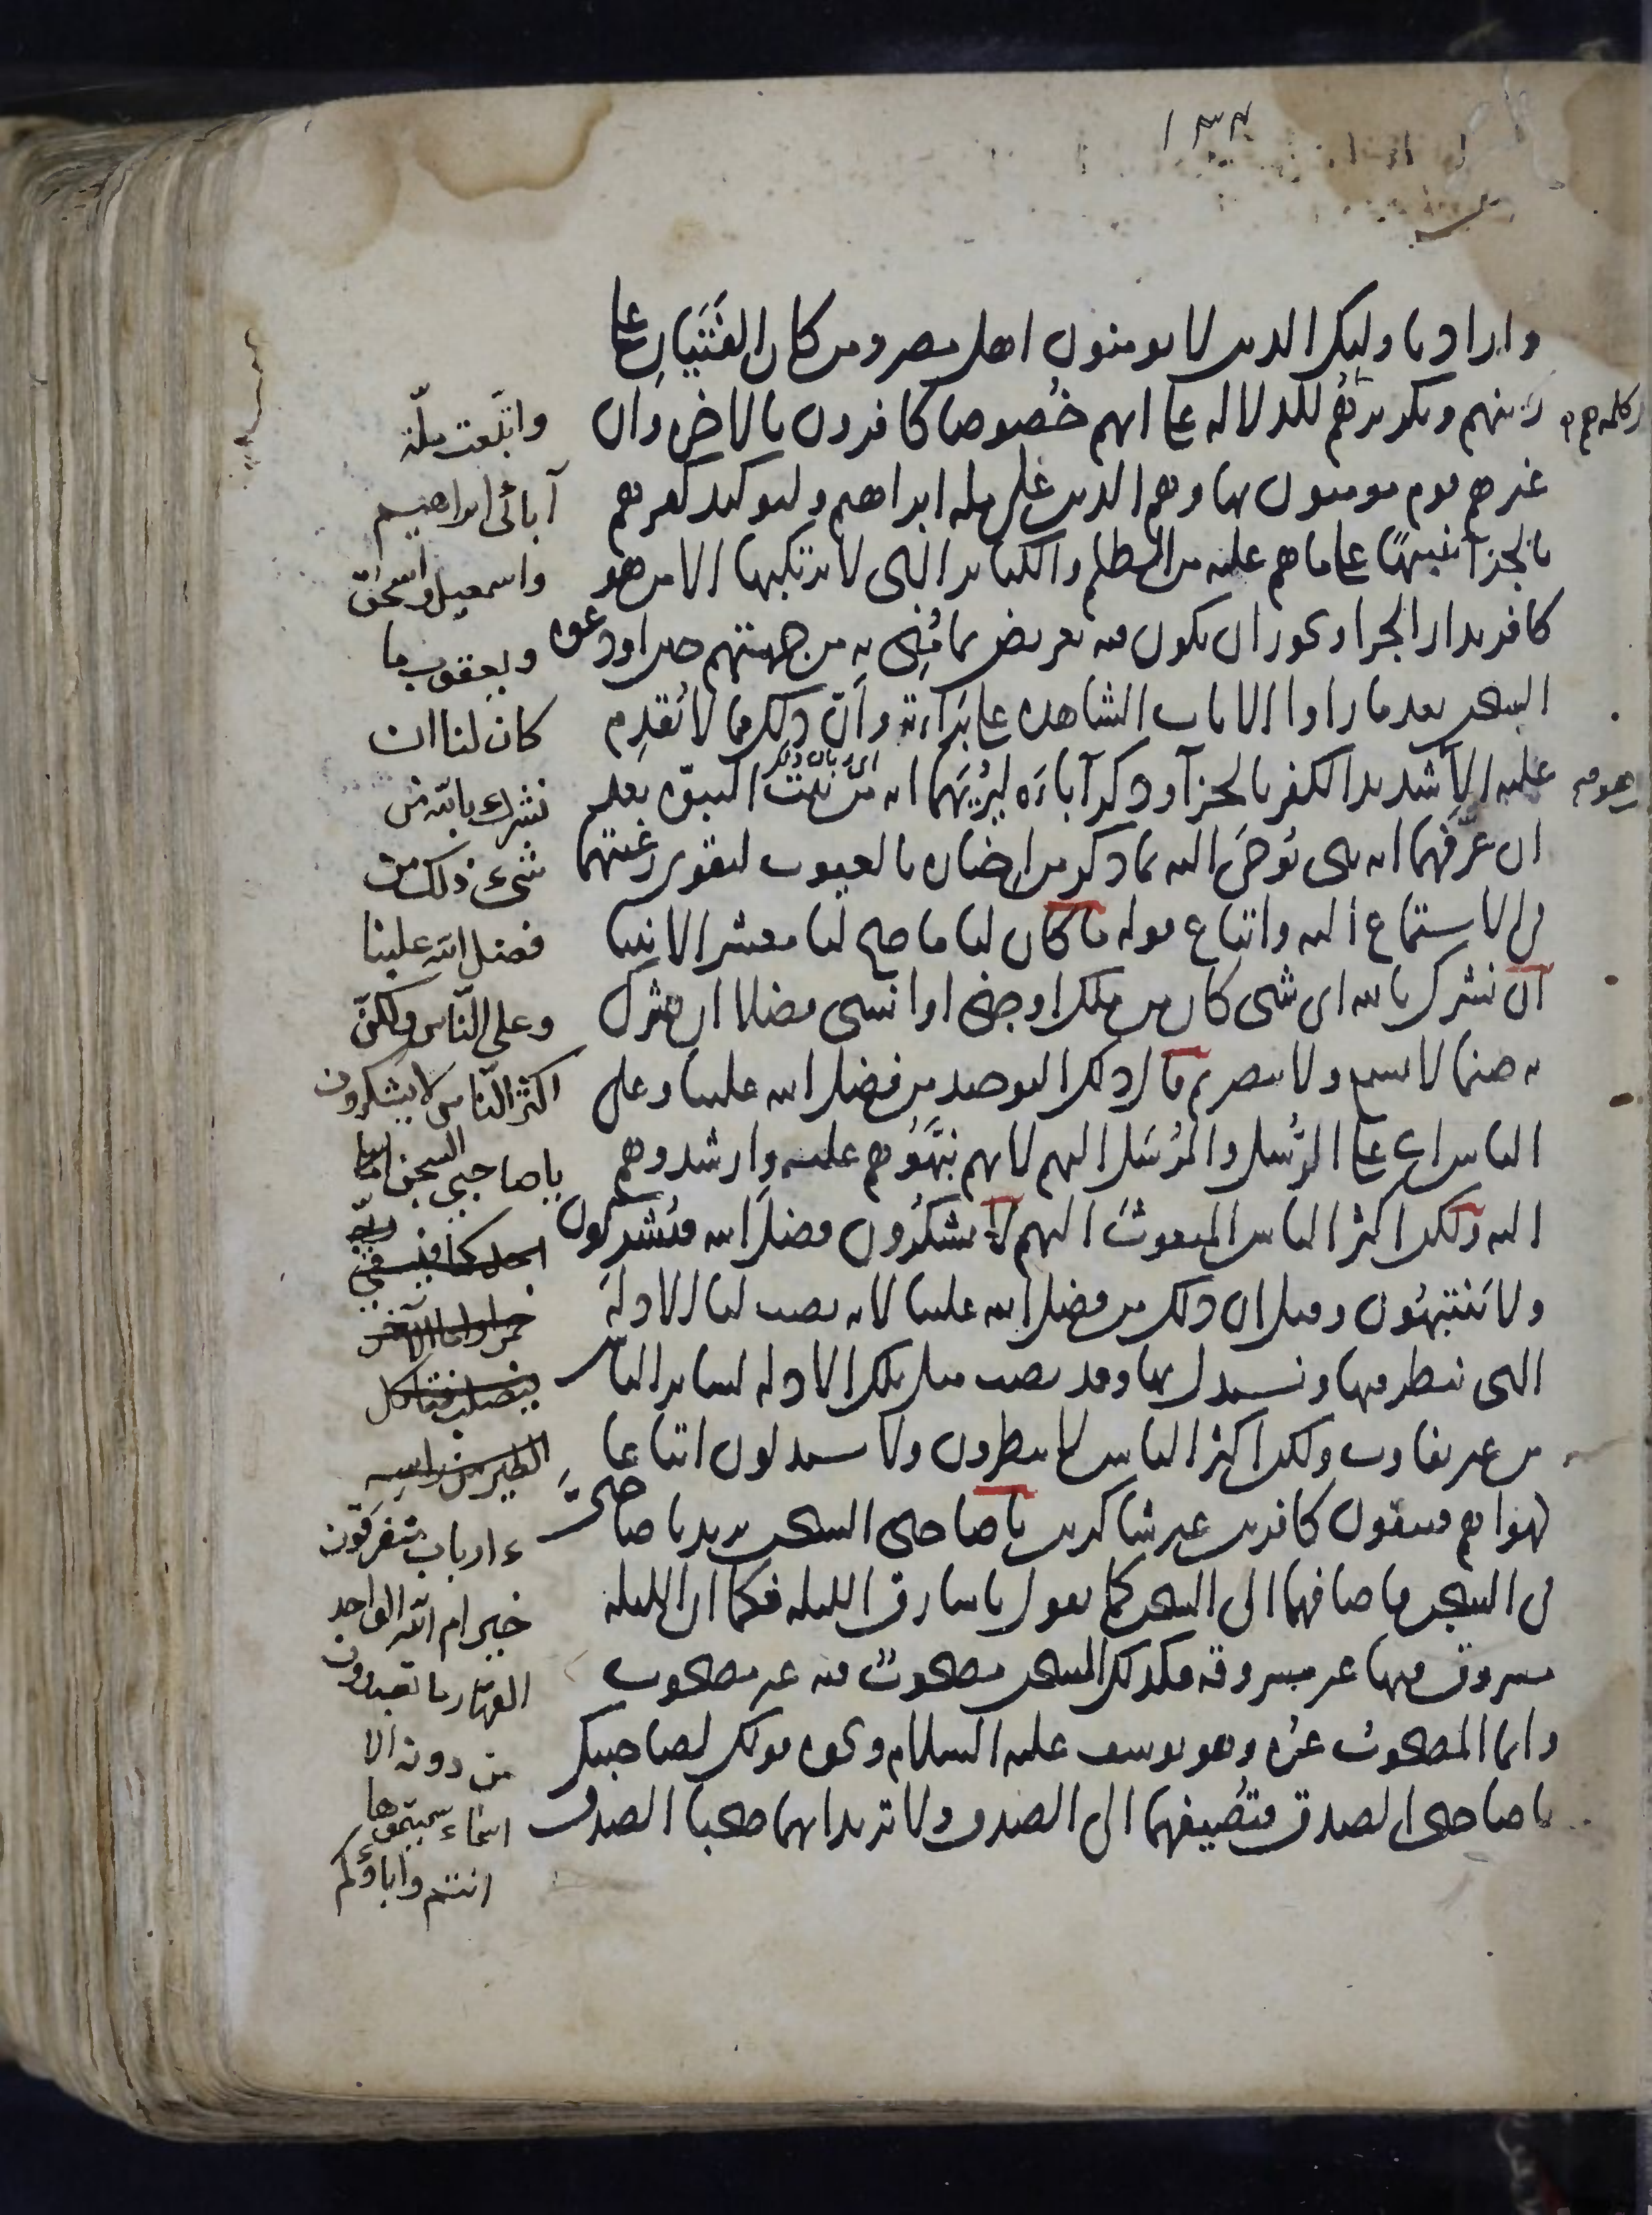 ١٣٤
واراد باوليك الذين لا يومنون اهل مصر ومن كان الفَتَيانِ على
دينهم وتكريرهم للدلالة على انهم خُصوصا كافرون بالاخرة وان
غيرهم قوم مومنون بها وهم الذين على ملة ابراهيم ولتوكيد كفرهم
بالجزآ تنبيهًا على ما هم عليه من الظلم والكباير التي لا يرتكبها الا من هو
كافر بدار الجزا ويجوز ان يكون فيه تعريض بما مُنِي به من جهتهم حين اودعوه
السجن بعد ما راوا الايات الشاهدة على بَرَاءته وأنّ ذلك مما لا يُقدِم
عليه الا شديد الكفر بالجزآ وذكر آباءَه ليُرِيَهما انه من بيت النبوّه بعد
ان عرّفهما انه نبي يُوحَى اليه بما ذكر من اخباره بالغيوب ليقوى رغبتهما
في الاستماع اليه واتباع قوله ما كان لنا ما صح لنا معشر الانبيا
ان نشرك بالله اي شي كان من ملك او جني او انسي فضلا ان نشرك
به صنما لا يسمع ولا يبصر ثم قال ذلك التوحيد من فضل الله علينا وعلى
الناس اي على الرُّسل والمُرْسَل اليهم لانهم نبَّهُوهم عليه وارشدوهم
اليه ولكن اكثر الناس المبعوث اليهم لا يشكرُون فضل الله فيُشركون
ولا يَنْتبِهُون وقيل ان ذلك من فضل الله علينا لانه نصب لنا الادلة
التي ننظر فيها ونستدل بها وقد نصب مثل تلك الادلة لساير الناس
من غير تفاوت ولكن اكثر الناس لا ينظرون ولا يستدلون اتباعا
لهواهم فيبقون كافرين غير شاكرين يا صاحبي السجن يريد يا صاحبَيَّ
في السجن فاضافهما الى السجن كما تقول يا سارق الليلة فكما ان الليلة
مسروق فيها غير مسروقة فكذلك السجن مصحوب فيه غير مصحوب
وانما المصحوب غيرُه وهو يوسف عليه السلام ونحوه قولك لصاحبيك
يا صاحبي الصدق فتُضيفهما الى الصدق ولا تريد انهما صحبا الصدق
اي ربان ذلك
واتبعت ملّة
آبائي ابراهيم
واسمعيل واسحٰق
ويعقوب ما
كان لنا ان
نشرك بالله من
شيء ذلك من
فضل الله علينا
وعلى النّاس ولكنّ
اكثر النّاس لا يشكرون
يا صاحبي السجن اما
احدكما فيسقي ربّه
خمرا واما الآخر
فيصلب فتاكل
الطير من راسه
ءارباب متفرقون
خير ام الله الواحد
القهّار ما تعبدون
من دونه الا
اسماء سمّيتموها
انتم وآباؤكم